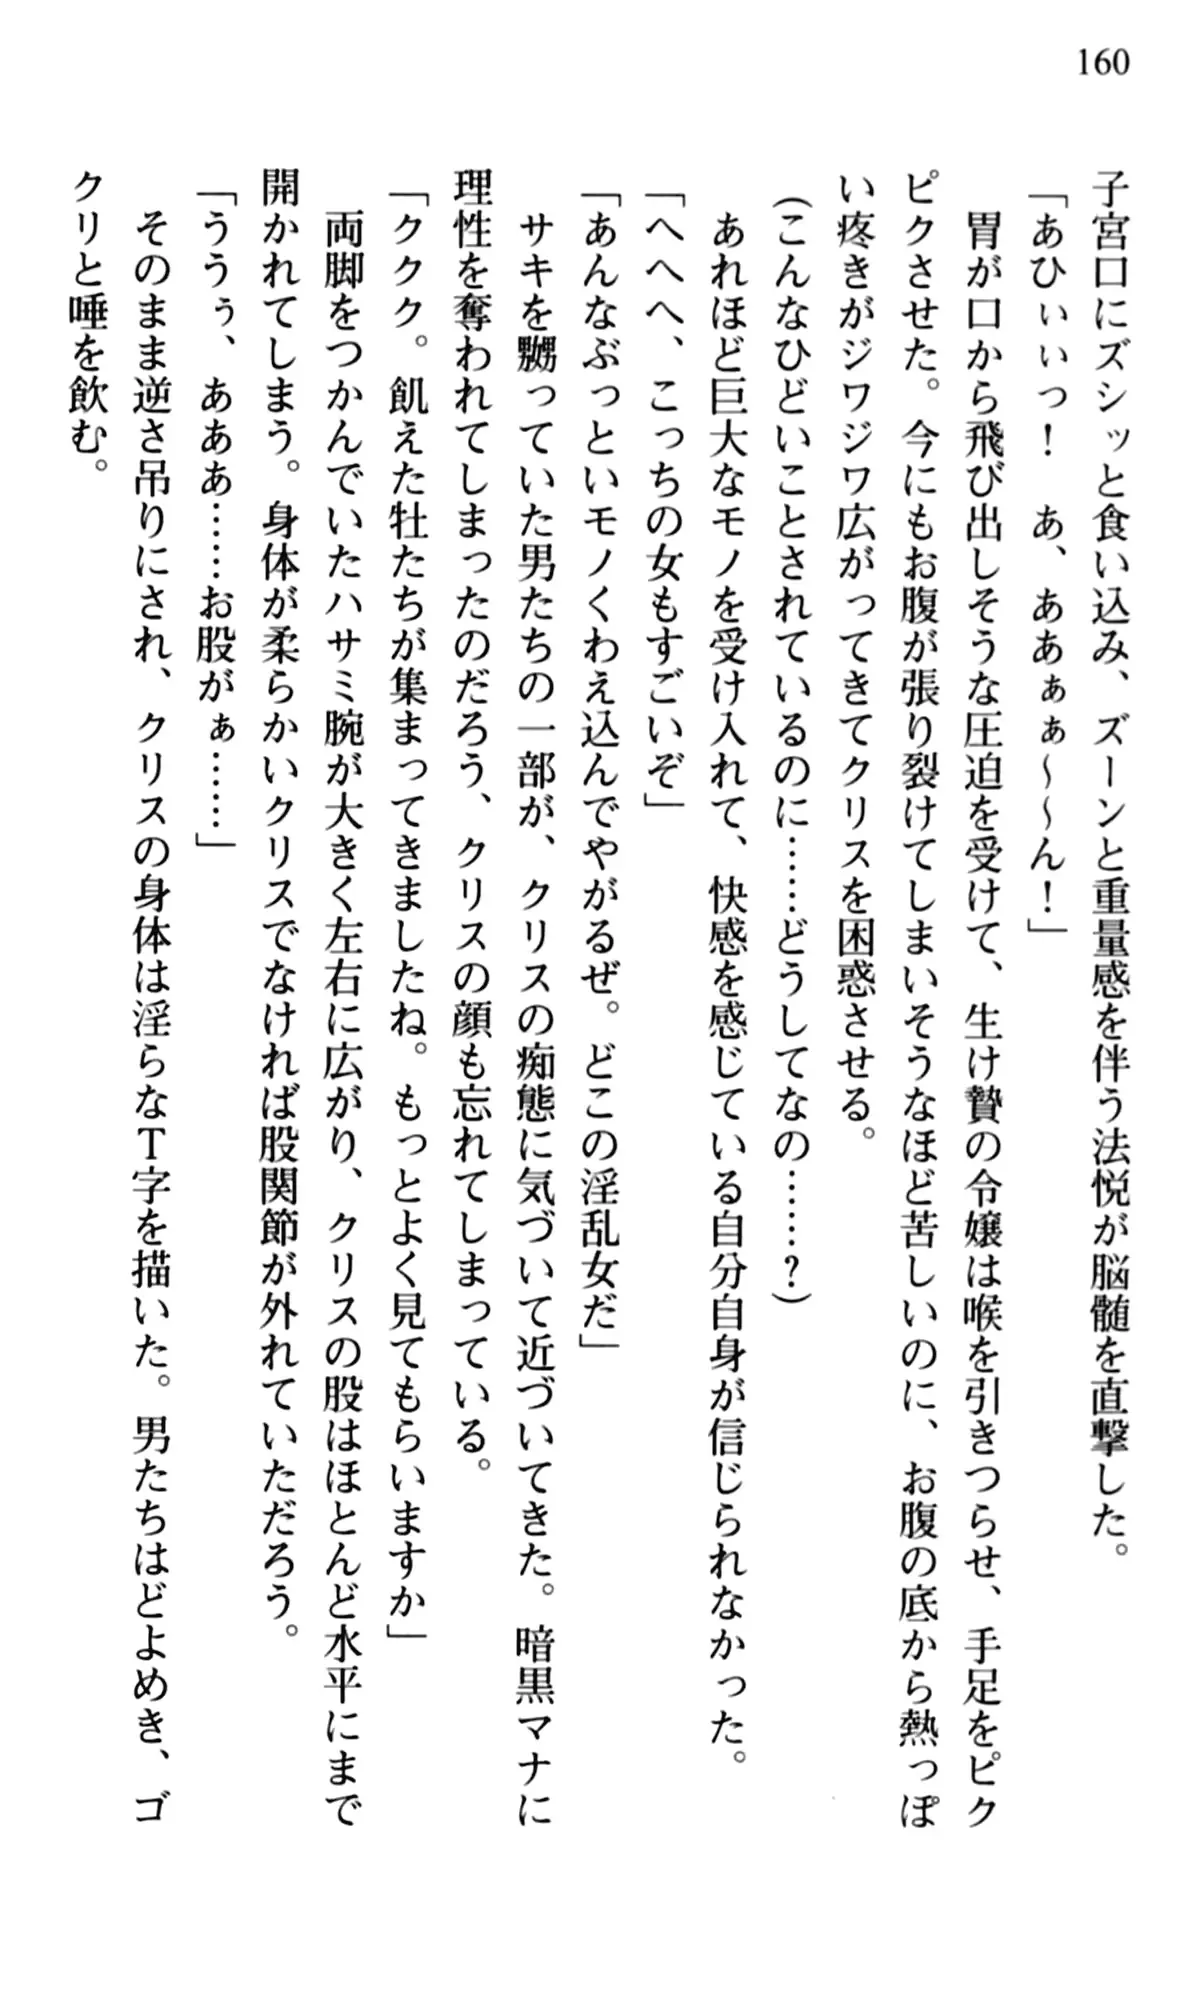 160
子宮口にズシッと食い込み、ズーンと重量感を伴う法悦が脳髄を直撃した。
「あひぃぃっ！　あ、あぁぁ～～ん！」
　胃が口から飛び出しそうな圧迫を受けて、生け贄の令嬢は喉を引きつらせ、手足をピク
ピクさせた。今にもお腹が張り裂けてしまいそうなほど苦しいのに、お腹の底から熱っぽ
い疼きがジワジワ広がってきてクリスを困惑させる。
（こんなひどいことされているのに……どうしてなの……？）
　あれほど巨大なモノを受け入れて、快感を感じている自分自身が信じられなかった。
「へへへ、こっちの女もすごいぞ」
「あんなぶっといモノくわえ込んでやがるぜ。どこの淫乱女だ」
　サキを嬲っていた男たちの一部が、クリスの痴態に気づいて近づいてきた。暗黒マナに
理性を奪われてしまったのだろう、クリスの顔も忘れてしまっている。
「ククク。飢えた牡たちが集まってきましたね。もっとよく見てもらいますか」
　両脚をつかんでいたハサミ腕が大きく左右に広がり、クリスの股はほとんど水平にまで
開かれてしまう。身体が柔らかいクリスでなければ股関節が外れていただろう。
「ううぅ、ああぁ……お股がぁ……」
　そのまま逆さ吊りにされ、クリスの身体は淫らなＴ字を描いた。男たちはどよめき、ゴ
クリと唾を飲む。